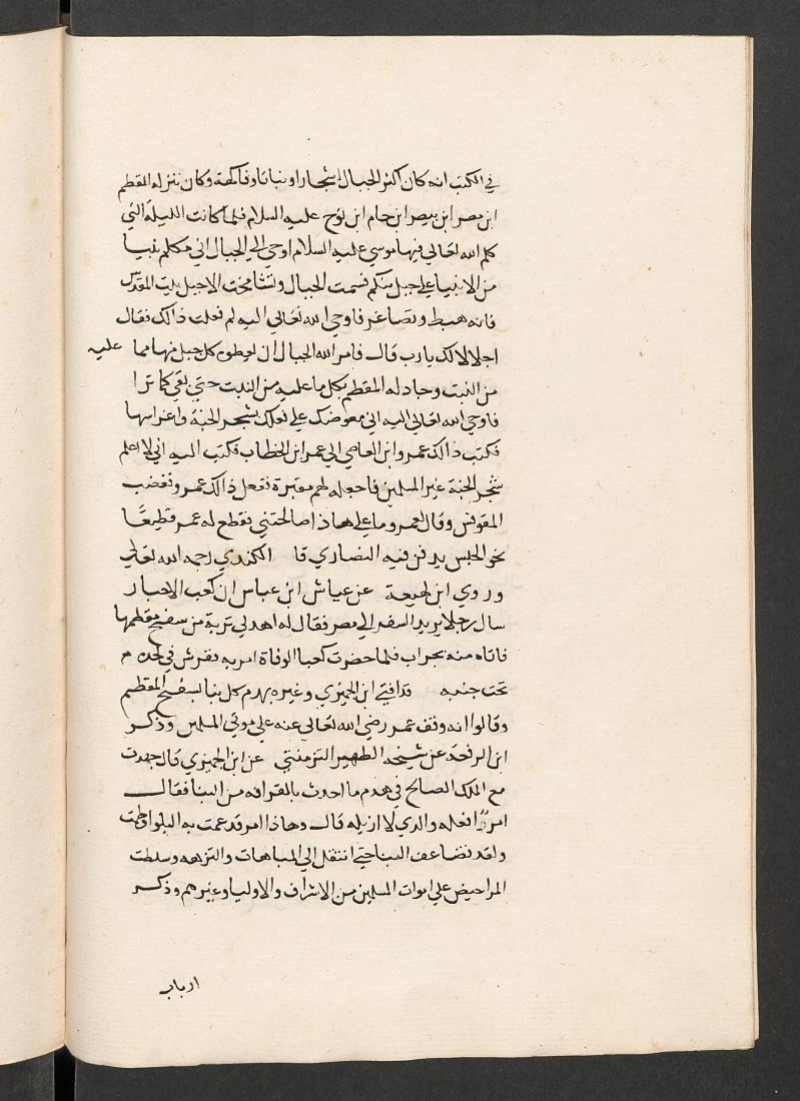 في الكتب انه كان اكثر الجبال اشجارا ونباتا وفاكهة وكان ينزله المقطم
ابن مصر ابن بيصر ابن حام ابن نوح عليه السلام فلما كانت الليلة التي
كلم الله تعالي فيها موسي عليه السلام اوحي الي الجبال اني مكلم نبيا
من الانبيا علي جبل منكم فسمت الجبال وتشامخت الا جبل بيت المقدس
فانه هبط وتصاغر فاوحي الله تعالي اليه لم فعلت ذالك فقال
اجلالا لك يارب قال فامر الله الجبال ان يعطوه كل جبل منها مما عليه
من النبت وجاد له المقطم بكل ما عليه من النبت حتي بقي كما ترا
فاوحي الله تعالي اليه اني معوضك علي فعلك بشجر الجنة واغراسها
فكتب ذالك عمرو ابن العاصي الي عمر ابن الخطاب فكتب اليه اني لا اعلم
شجر الجنة غير المسلمين فاجعله لهم مقبرة ففعل ذالك عمرو فغضب
المقوقس وقال لعمرو ما علي هاذا صالحتني فقطع له عمر قطيعا
نحو الحبس يدفن فيه النصاري قا الكندي رحمه الله تعالي
وروي ابن لهيعة عن عياش ابن عباس ان كعب الاحبار
سال رجلا يريد السفر الي مصر فقال له اهد لي تربة من سفح مقطمها
فاتاه منه بجراب فلما حضرت كعبا الوفاة امر به ففرش في لحده
تحت جنبه قد افتي ابن الجميزي وغيره بهدم كل بنا بسفح المقطم
وقالوا انه وقف عمر رضي الله تعالي عنه علي موتي المسلمين وذكر
ابن الرفعة عن شيخه الظهير التزمنتي عن ابن الجميزي قال جهدت
مع الملك الصالح في هدم ما احدث بالقرافه من البنا فقال
امر فعله والدي لا ازيله قال وهاذا امر قد عمت به البلوا وطمت
ولقد تضاعف البنا حتي انتقل الي المباهات والنزهه وسلطت
المراحيض علي اموات المسلمين من الاشراف والاوليا وغيرهم وذكر
ارباب